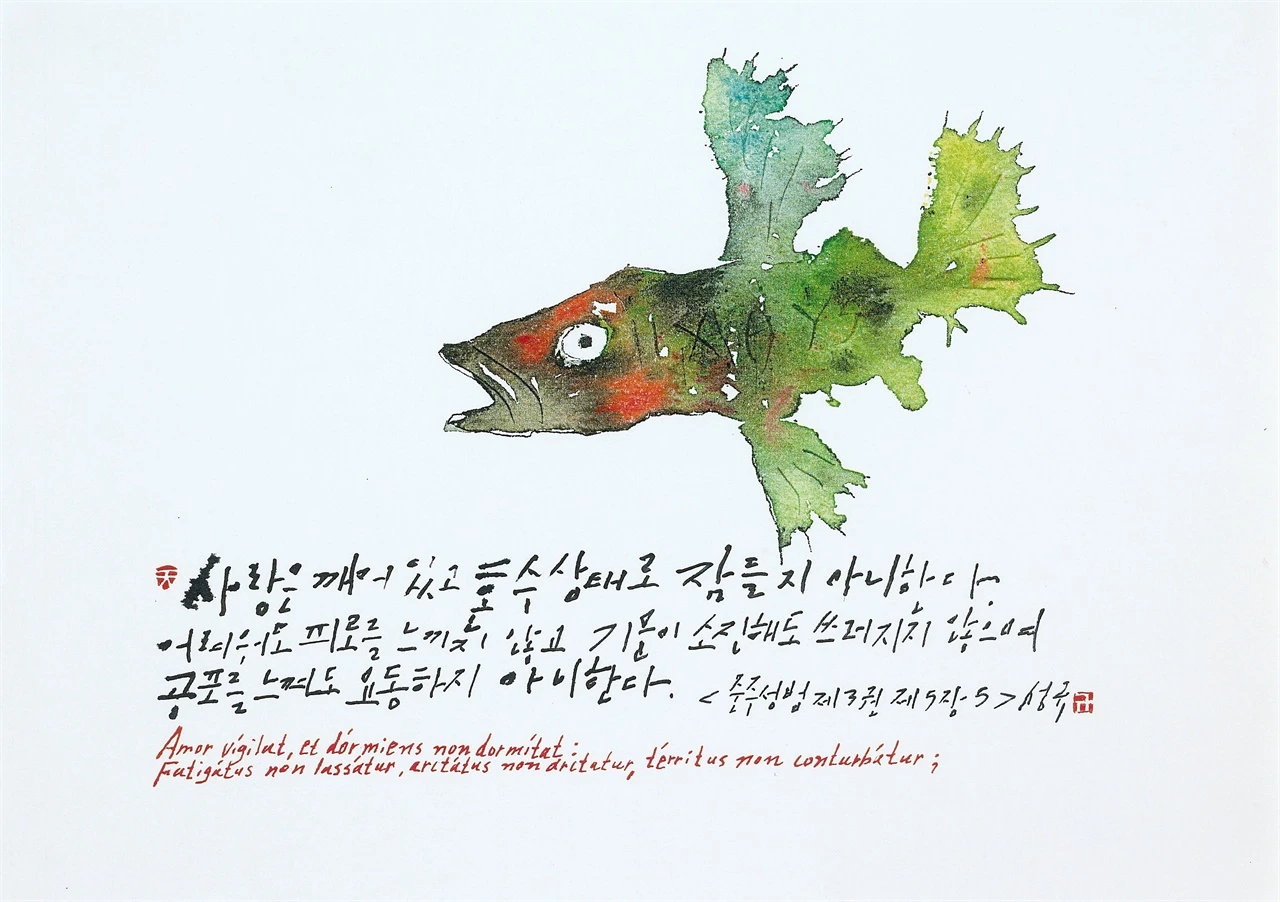 사랑은 깨어 있고 혼수상태로 잠들지 아니하다.
어려워도 피로를 느끼지 않고 기분이 소진해도 쓰러지지 않으며
공포를 느껴도 요동하지 아니한다. <준주성범 제3권 제5장-5> 성규
Amor vígilat, et dórmiens non dormítat :
Fatigátus non lassátur, arctátus non arctatur, térritus non conturbátur ;